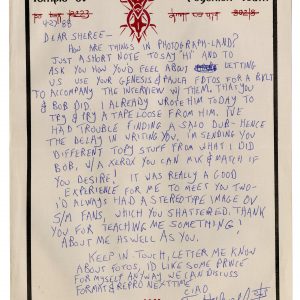 4-27-88
DEAR SHEREE-
HOW ARE THINGS IN PHOTOGRAPH-LAND?
JUST A SHORT NOTE TO SAY 'HI' AND TO
ASK YOU HOW YOU'D FEEL ABOUT LETTING
US USE YOUR GENESIS & PAULA FOTOS FOR A BKLT
TO ACCOMPANY THE INTERVIEW W/ THEM, THAT YOU
& BOB DID. I ALREADY WROTE HIM TODAY TO
TRY & TRY A TAPE LOOSE FROM HIM. I'VE
HAD TROUBLE FINDING A SOLO DUB - HENCE
THE DELAY IN WRITING YOU, I'M SENDING YOU
DIFFERENT TOPY STUFF FROM WHAT I DID
BOB, W/ A XEROX YOU CAN MIX & MATCH IF
YOU DESIRE! IT WAS REALLY A GOOD
EXPERIENCE FOR ME TO MEET YOU TWO-
I'D ALWAYS HAD A STEREOTYPE IMAGE OV
S/M FANS, WHICH YOU SHATTERED. THANK
YOU FOR TEACHING ME SOMETHING!
ABOUT ME AS WELL AS YOU.
KEEP IN TOUCH, LETTER ME KNOW
ABOUT FOTOS, I'D LIKE SOME
FOR MYSELF ANYWAY. WE CAN DISCUSS
FORMAT & REPRO NEXT TIME
CIAO